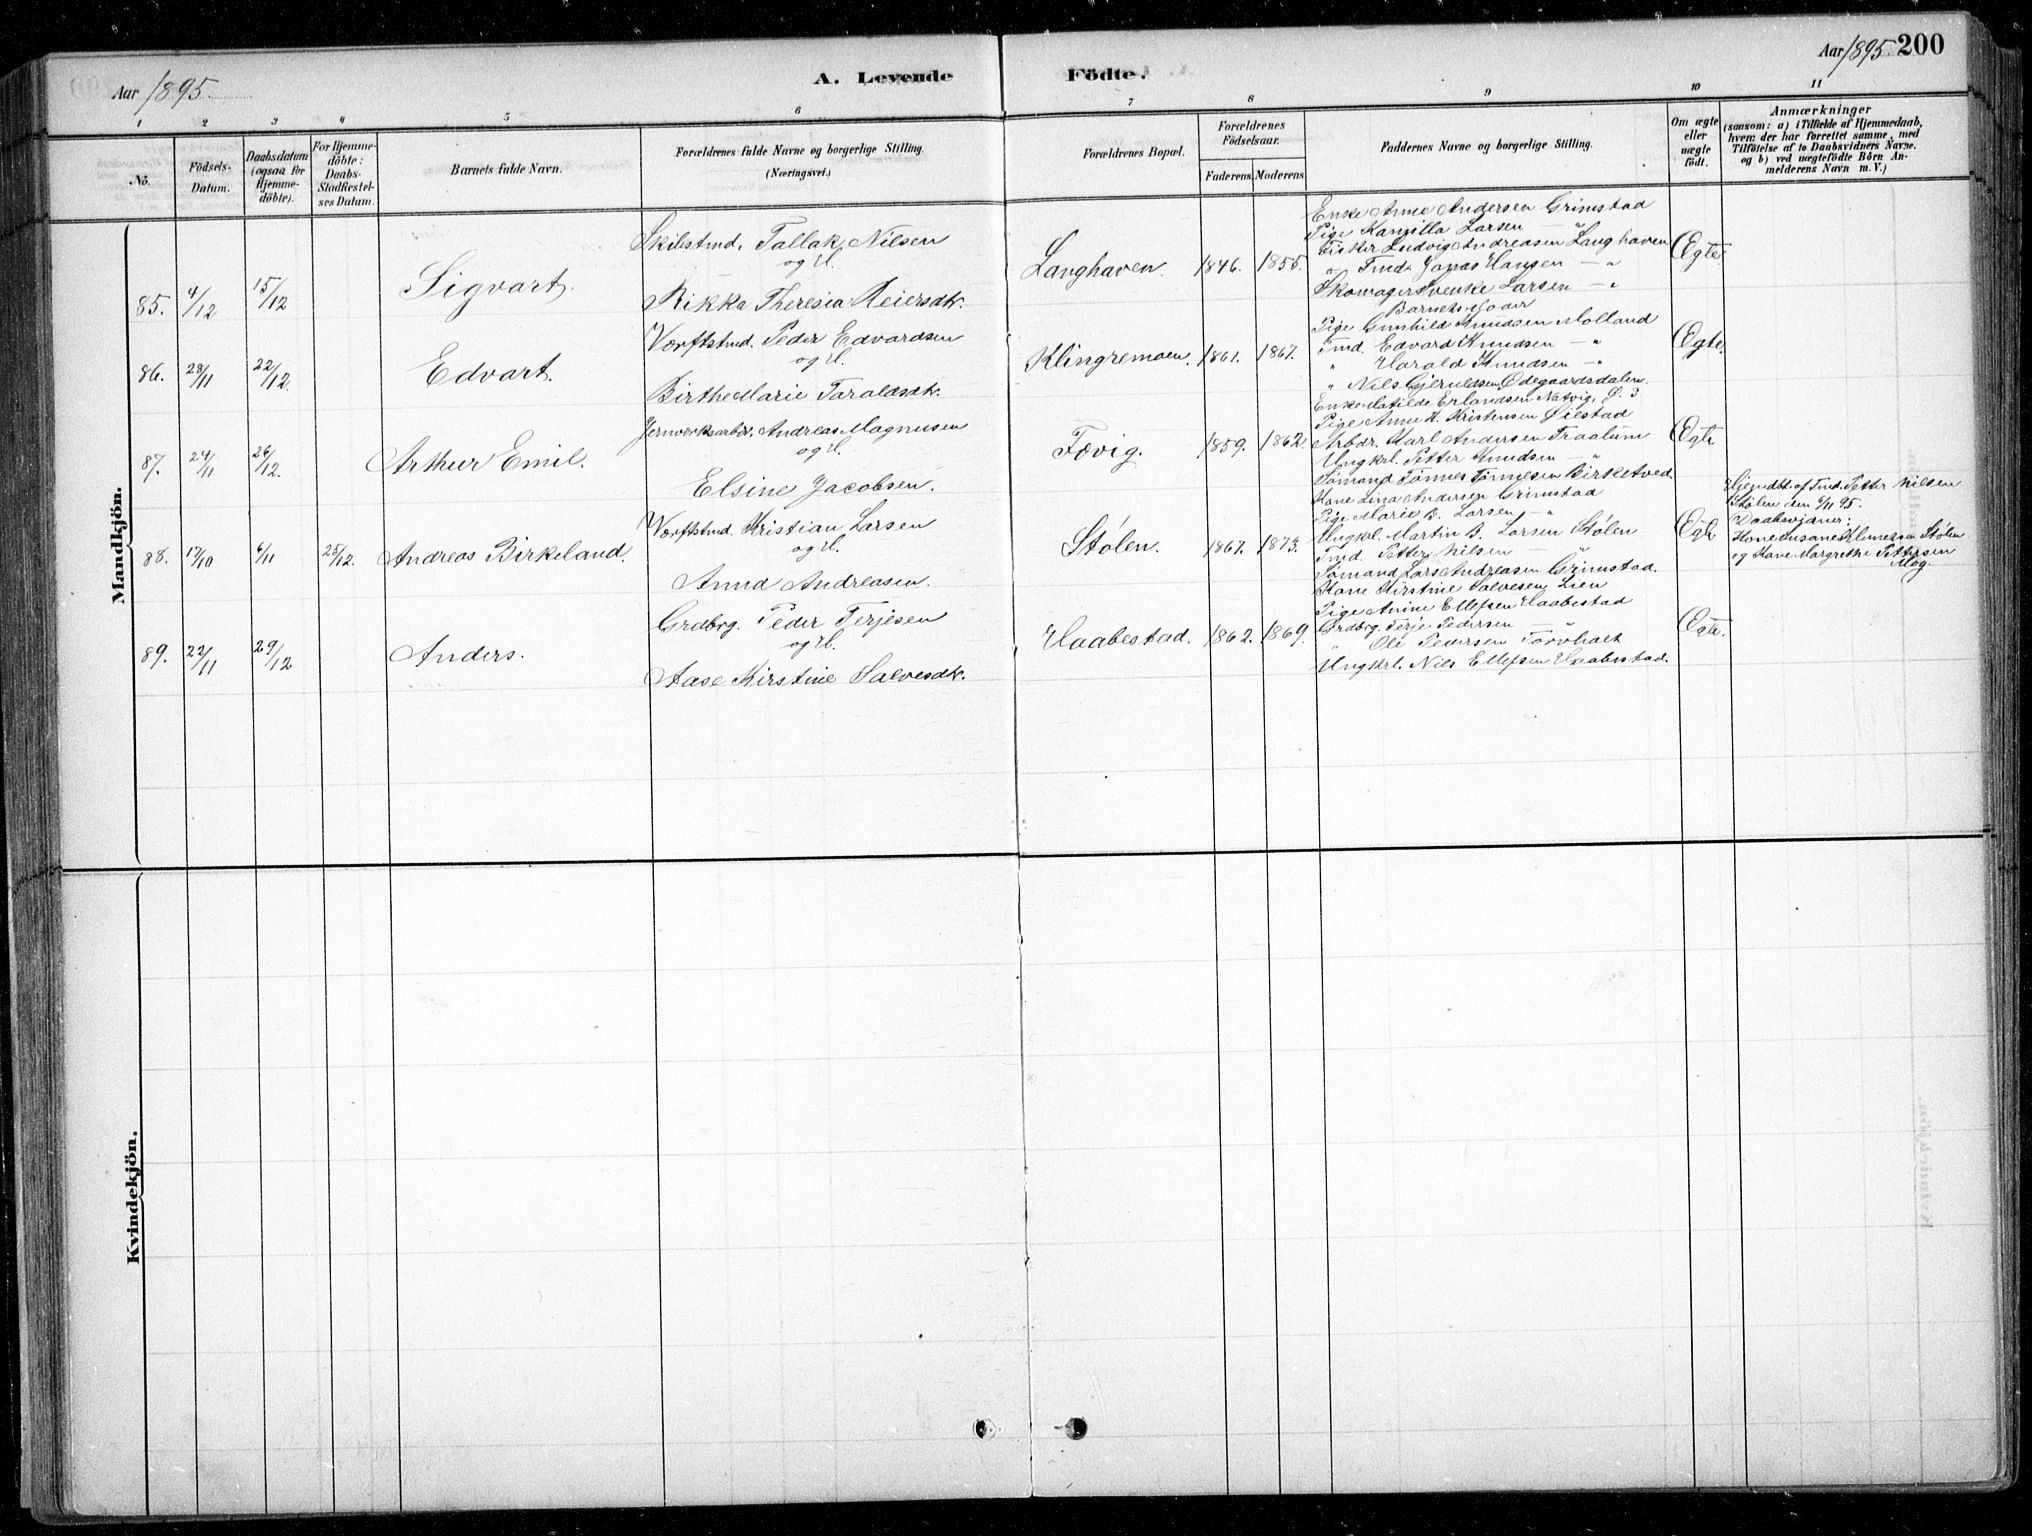 Aar 1895.
A. Levende
Födte.
Aar 1895. 200
1 2 3 4 5 6 7 8 9 10 11
No.
Födsels-
Datum.
Daabsdatum
(ogsaa for
Hjemme-
döbte).
For Hjemme-
döbte:
Daabs-
Stadfæstel-
ses Datum.
Barnets fulde Navn.
Forældrenes fulde Navne og borgerlige Stilling.
(Næringsvei.)
Forældrenes Bopæl.
Forældrenes
Födselsaar.
Faderens. Moderens.
Faddernes Navne og borgerlige Stilling.
Om ægte
eller
uægte
födt.
Anmærkninger
(saasom: a) i Tilfælde af Hjemmedaab,
hvem der har forrettet samme, med
Tilföielse af to Daabsvidners Navne.
og b) ved uægtefödte Börn An-
melderens Navn m. V.)
Mandkjön.
85. 4/12 15/12
Sigvart.
Skibstmd. Tallak Nilsen
og H.
Rikka Theresia Reiersdtr.
Langhaven. 1846. 1855.
Enke Anne Andersen Grimstad
Pige Kamilla Larsen — "
Fisker Ludvig Andreasen Langhaven
" Tmd. Jonas Hansen — "
Skomager Svenke Larsen — "
Barnets Fader
Egte.
86. 28/11 22/12
Edvart.
Værftstmd. Peder Edvardsen
og H.
Birthe Marie Taraldsdtr.
Klingremoen. 1861. 1867.
Pige Gunhild Knudsen Molland
Tmd. Edvard Knudsen — "
" Harald Knudsen — "
" Nils Gjeruldsen Ødegaardsdalen.
Egte.
87. 24/11 26/12.
Arthur Emil.
Jernverksarbdr. Andreas Magnusen
og H.
Elsine Jacobsen.
Fævig. 1859. 1862.
Enke Matilde Erlandsen Natvig, Ø. 3
Pige Anne K. Kristensen Øiestad
Arbdr. Karl Andersen Traalum
Ungkrl. Petter Knudsen — "
Sømand Tønnes Tønnesen Birketved.
Egte
88. 17/10 6/11 25/12.
Andreas Birkeland.
Værftstmd. Kristian Larsen
og H.
Anna Andreasen.
Stølen. 1867. 1873.
Kone Lina Andersen Grimstad
Pige Marie B. Larsen — "
Ungkrl. Martin B. Larsen Stølen
Tmd. Petter Nilsen — "
Sømand Lars Andreasen Grimstad.
Egte
Hjemdbt. af Tmd. Petter Nilsen
Stølen den 6/11 95.
Daabsvidner:
Kone Susane Klemetsen Stølen
og Kone Margrethe Pettersen
89. 22/11 29/12
Anders.
Grdbrg. Peder Terjesen
og H.
Aase Kirstine Salvesdtr.
Haabestad. 1862. 1869.
Kone Kirstine Salvesen Lien
Pige Anine Ellefsen Haabestad
Grdbrg. Terje Pedersen — "
" Ole Pedersen Torvholt
Ungkrl. Nils Ellefsen Haabestad.
Egte.
Kvindekjön.